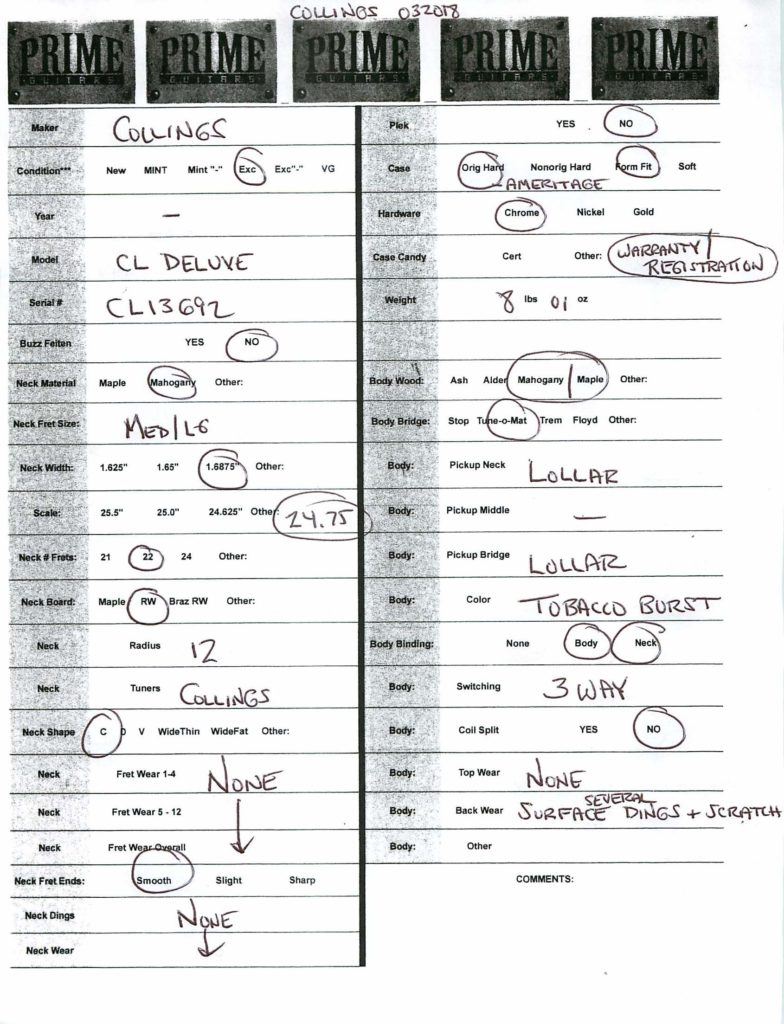 COLLINGS 032018
PRIME PRIME PRIME PRIME PRIME
GUITARS GUITARS GUITARS GUITARS GUITARS
Maker COLLINGS
Condition*** New MINT Mint "-" Exc Exc"-" VG
Year —
Model CL DELUXE
Serial # CL13692
Buzz Feiten YES NO
Neck Material Maple Mahogany Other:
Neck Fret Size: MED/LG
Neck Width: 1.625" 1.65" 1.6875" Other:
Scale: 25.5" 25.0" 24.625" Other: 24.75
Neck # Frets: 21 22 24 Other:
Neck Board: Maple RW Braz RW Other:
Neck Radius 12
Neck Tuners COLLINGS
Neck Shape C D V WideThin WideFat Other:
Neck Fret Wear 1-4 NONE
Neck Fret Wear 5 - 12
Neck Fret Wear Overall
Neck Fret Ends: Smooth Slight Sharp
Neck Dings NONE
Neck Wear
Plek YES NO
Case Orig Hard Nonorig Hard Form Fit Soft
- AMERITAGE
Hardware Chrome Nickel Gold
Case Candy Cert Other: WARRANTY/
REGISTRATION
Weight 8 lbs 01 oz
Body Wood: Ash Alder Mahogany Maple Other:
Body Bridge: Stop Tune-o-Mat Trem Floyd Other:
Body: Pickup Neck LOLLAR
Body: Pickup Middle —
Body: Pickup Bridge LOLLAR
Body: Color TOBACCO BURST
Body Binding: None Body Neck
Body: Switching 3 WAY
Body: Coil Split YES NO
Body: Top Wear NONE
SEVERAL
Body: Back Wear SURFACE DINGS + SCRATCH
Body: Other
COMMENTS: